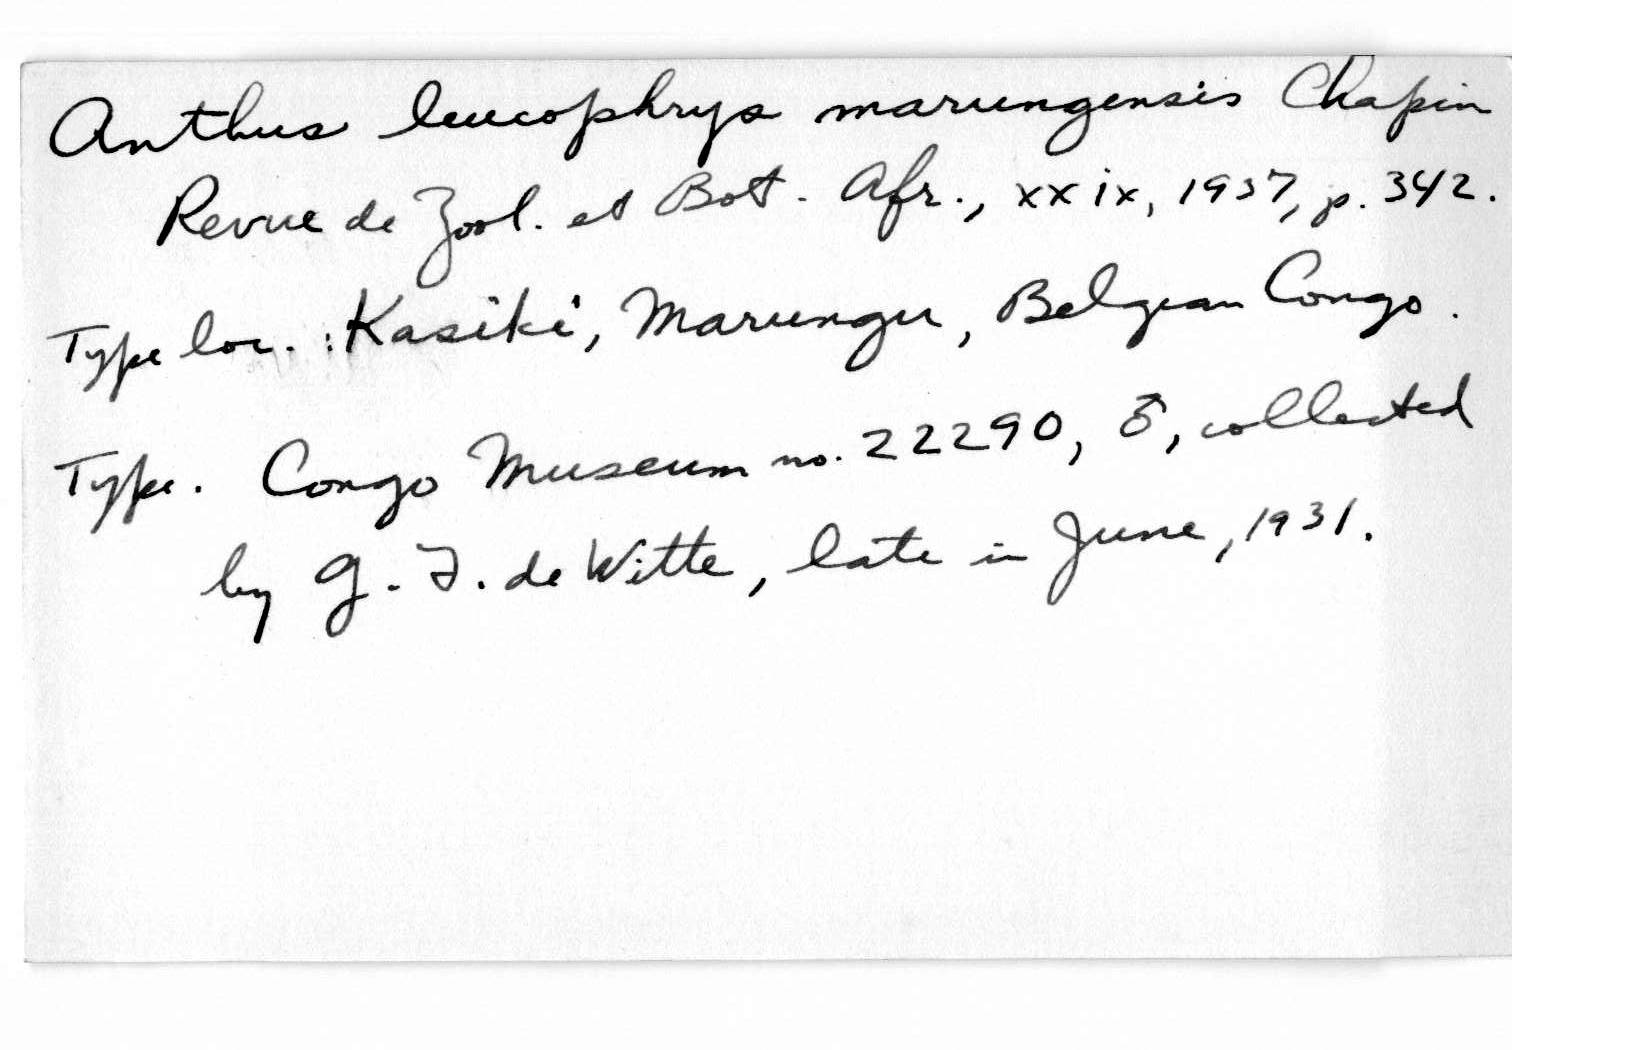 Anthus leucophrys marungensis Chapin
Revue de Zool. et Bot. Afr., xxix, 1937, p. 342.
Type loc. : Kasiki, Marungu, Belgian Congo.
Type. Congo Museum no. 22290, ♂, collected
by G. F. de Witte, late in June, 1931.